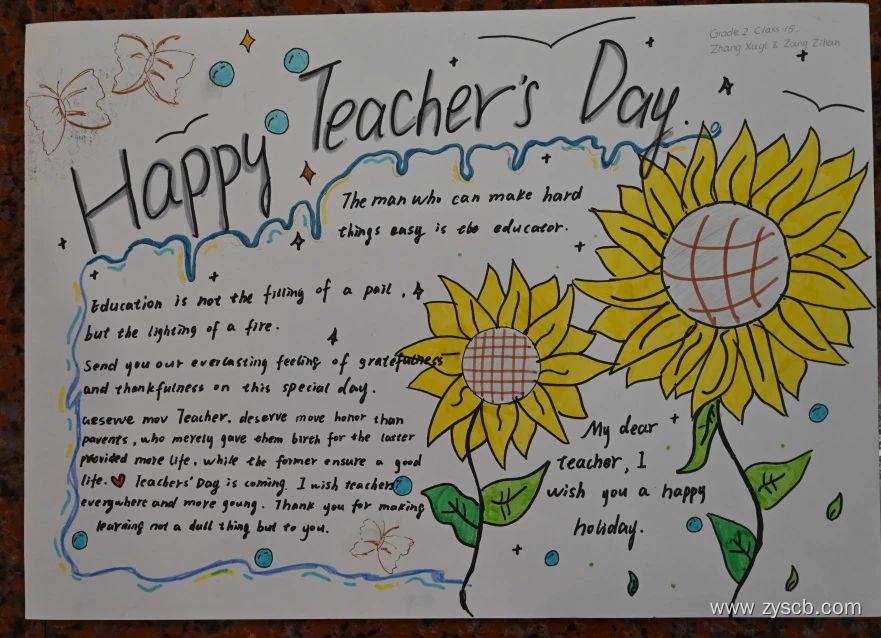 Grade 2 Class 15.
Zhang Xuyi & Zang Zihan
Happy Teacher's Day.
The man who can make hard
things easy is the educator.
Education is not the filling of a pail,
but the lighting of a fire.
Send you our everlasting feeling of gratefulness
and thankfulness on this special day.
mov Teacher. deserve move honor than
parents, who merely gave them birth for the latter
provided more life, while the former ensure a good
life. ❤ Teachers' Day is coming. I wish teachers
everywhere and more young. Thank you for making
learning not a dull thing but to you.
My dear
teacher, I
wish you a happy
holiday.
www.zyscb.com